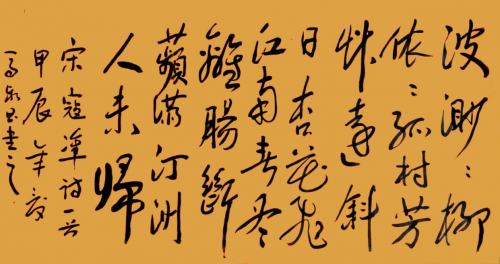 波渺〻柳
依〻孤村芳
艸遠斜
日杏花飛
江南春尽
離腸斷
蘋滿汀洲
人未歸
宋寇準詩一首
甲辰年夏
書之